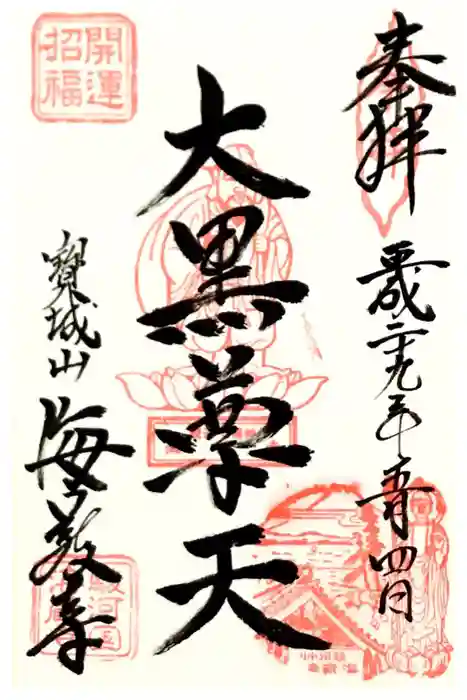 奉拝
平成二十九年五月四日
大黒尊天
開運
招福
寶城山
海蔵寺